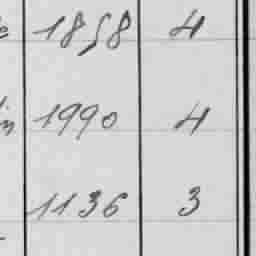 1858 4
1990 4
1136 3